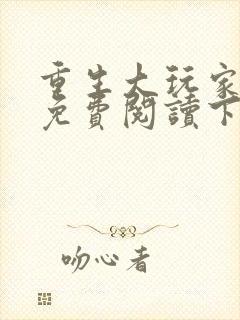 重生大玩家
免費閱讀下
吻心者